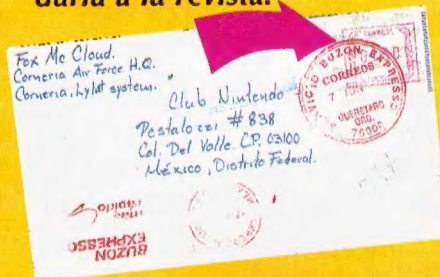 daría a la revista.
Fox Mc Cloud.
Corneria Air Force H.Q.
Corneria, Lylat system.
Club Nintendo
Pestalozzi # 838
Col. Del Valle. C.P. 03100
México, Distrito Federal.
SERVICIO BUZON EXPRESSO
CORREOS
7 JUN
QUERETARO
QRO.
76000
BUZON
EXPRESSO